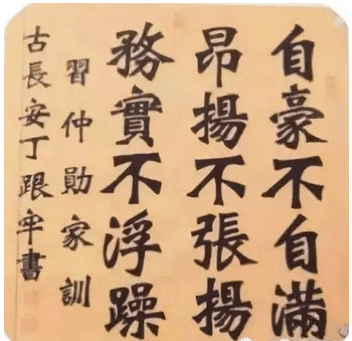 自豪不自滿
昂揚不張揚
務實不浮躁
習仲勛家訓
古長安丁跟牢書